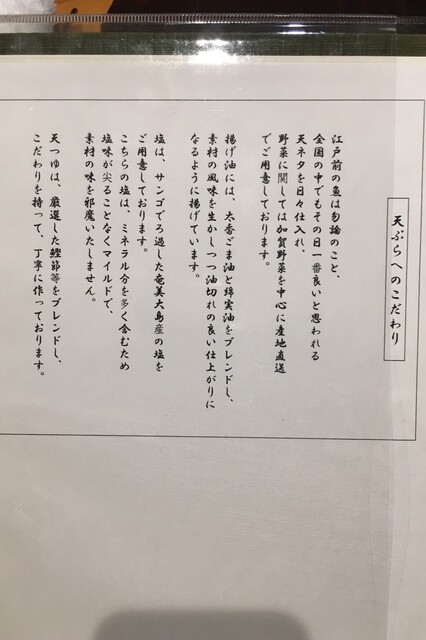 天ぷらへのこだわり
江戸前の魚は勿論のこと、
全国の中でもその日一番良いと思われる
天ネタを日々仕入れ、
野菜に関しては加賀野菜を中心に産地直送
でご用意しております。
揚げ油には、太香ごま油と綿実油をブレンドし、
素材の風味を生かしつつ油切れの良い仕上がりに
なるように揚げています。
塩は、サンゴでろ過した奄美大島産の塩を
ご用意しております。
こちらの塩は、ミネラル分を多く含むため
塩味が尖ることなくマイルドで、
素材の味を邪魔いたしません。
天つゆは、厳選した鰹節等をブレンドし、
こだわりを持って、丁寧に作っております。